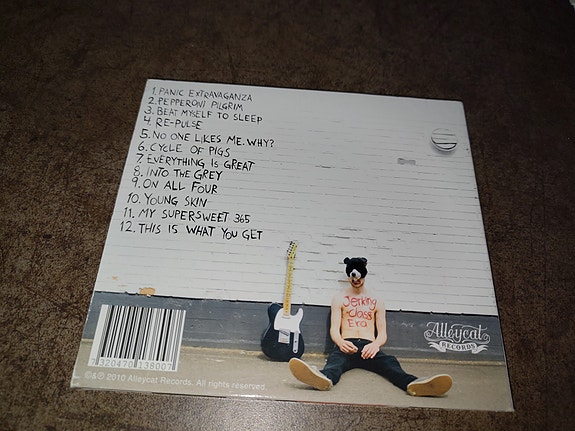 1. PANIC EXTRAVAGANZA
2. PEPPERONI PILGRIM
3. BEAT MYSELF TO SLEEP
4. RE-PULSE
5. NO ONE LIKES ME. WHY?
6. CYCLE OF PIGS
7. EVERYTHING IS GREAT
8. INTO THE GREY
9. ON ALL FOUR
10. YOUNG SKIN
11. MY SUPERSWEET 365
12. THIS IS WHAT YOU GET
Jerking
Class
Era
Alleycat
RECORDS
9 320470 138007
©&℗ 2010 Alleycat Records. All rights reserved.